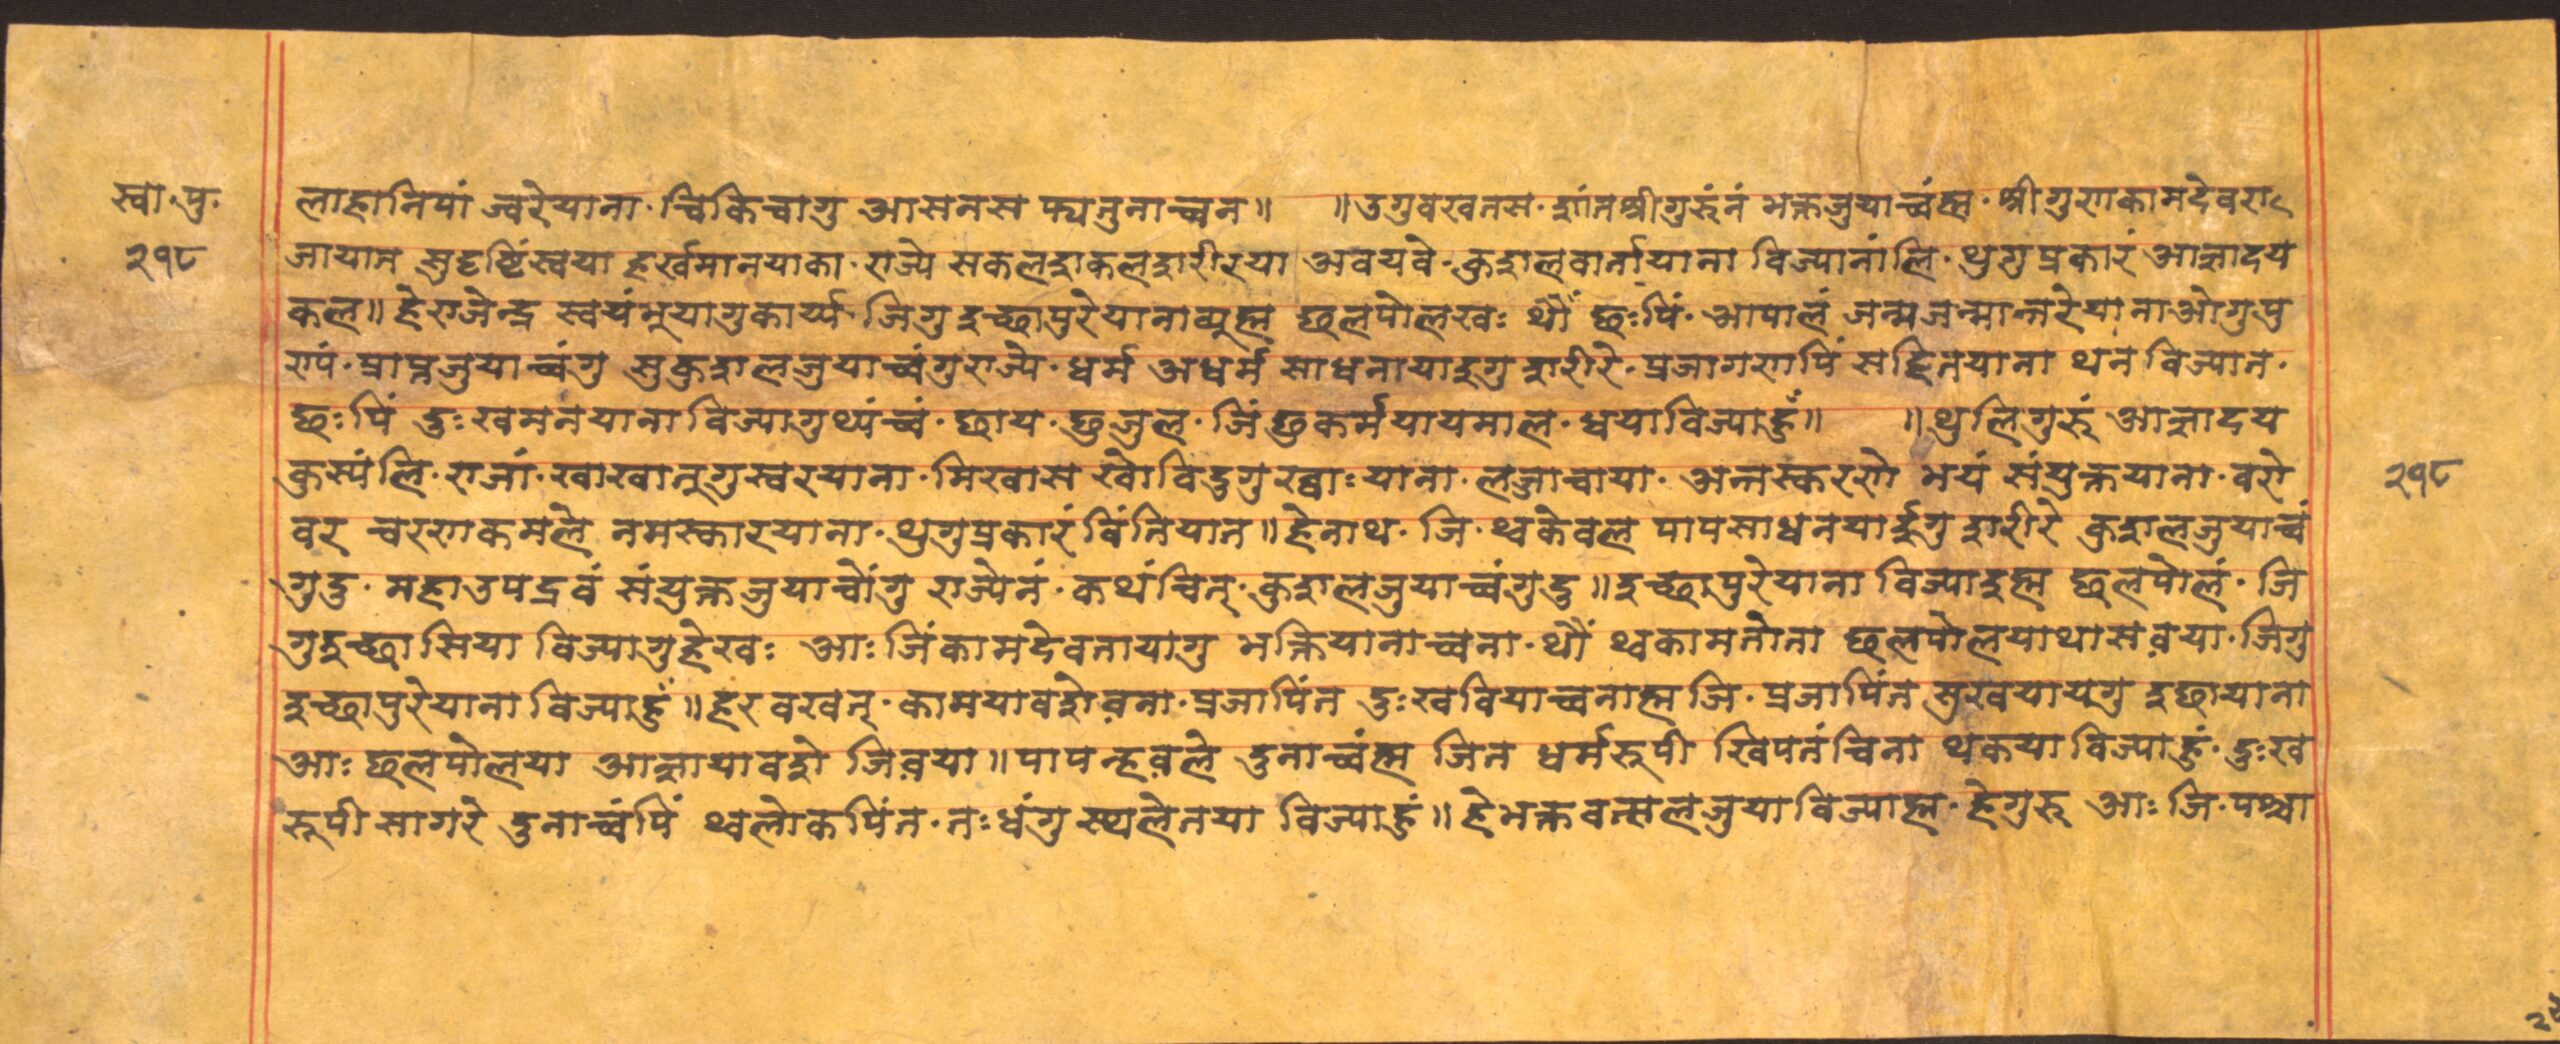 स्वा.पु.
२१८
लाहानिपां ज्वरेयाना. चिकिचागु आसनस फ्यतुनाच्वन॥ ॥उगुवखनस. शांतश्रीगुरुंनं भक्तजुयाच्वंह्म. श्रीगुणकामदेवरा
जायात सुदृष्टिंस्वया हर्खमानयाका. राज्ये सकलशकलशरीरया अवयवे. कुशलवार्तायाना विज्यानांलि. थुगुप्रकारं आज्ञादय
कल॥ हेराजेन्द्र स्वयंभूयागुकार्य्य. जिगु इच्छापुरेयानाब्यूह्म छलपोलखः थौं छःपिं. आपालं जन्मजन्मान्तरेयानाओगुपु
ण्यं. प्राप्तजुयाच्वंगु सुकुशलजुयाच्वंगुराज्ये. धर्म अधर्म साधनायाइगु शरीरे. प्रजागणपिं सहितयाना थन विज्यात.
छःपिं दुःखमनयाना विज्यागुथ्यंच्वं. छाय. छुजुल. जिं छुकर्मयायमाल. धयाविज्याहुँ॥ ॥थुलिगुरुं आज्ञादय
कुस्यंलि. राजां. खाखातूगुस्वरयाना. मिखास खोविदुगुख्वाःयाना. लज्जाचाया. अन्तस्करणे भयं संयुक्तयाना. वरो
वर चरणकमले नमस्कारयाना. थुगुप्रकारं विंतियात॥ हेनाथ. जि. थ्वकेवल पापसाधनयाईगु शरीरे कुशलजुयाच्वं
गुदु. महाउपद्रवं संयुक्तजुयाचोंगु राज्येनं. कथंचित्. कुशलजुयाच्वंगुदु॥ इच्छापुरेयाना विज्याइह्म छलपोलं. जि
गुइच्छा सिया विज्यागुहेखः आः जिंकामदेवतायागु भक्तियानाच्वना. थौं थ्वकामतोता छलपोलयाथासवया. जिगु
इच्छापुरेयाना विज्याहुँ॥ हरवखत्. कामयावशेवना. प्रजापिंत दुःखवियाच्वनाह्म जि. प्रजापिंत सुखयायगु इछायाना
आः छलपोलया आज्ञायावशे जिवया॥ पापन्हवले दुनाच्वंह्म जित धर्मरूपी खिपतंचिना थकया विज्याहुँ. दुःख
रूपी सागरे दुनाच्वंपिं थ्वलोकपिंत. तःधंगु स्थलेतया विज्याहुँ॥ हेभक्तवत्सलजुयाविज्याह्म. हेगुरु आः जि. पश्चा
२१८